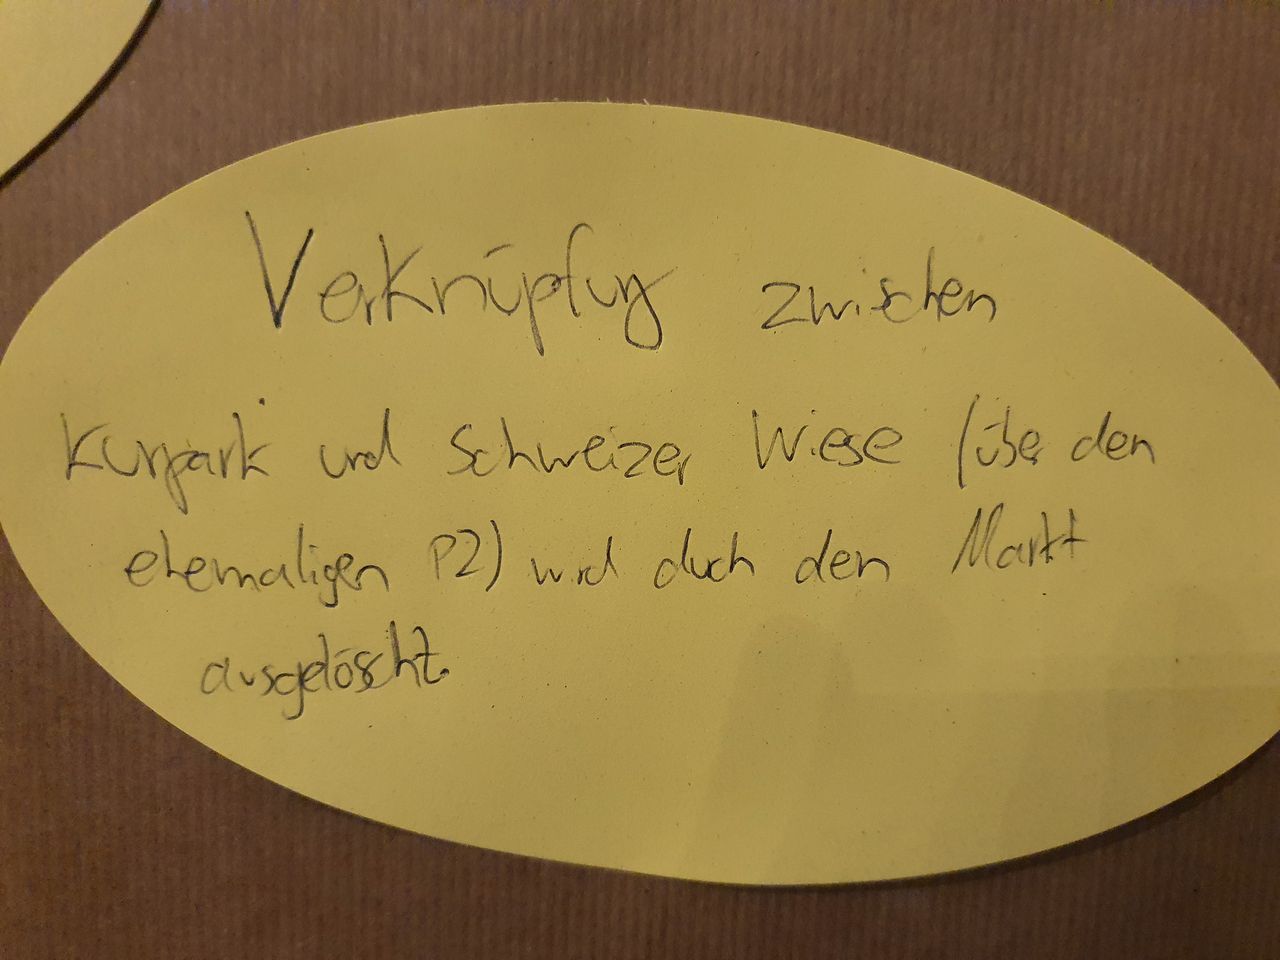 Verknüpfung zwischen
Kurpark und Schweizer Wiese (über den
ehemaligen P2) wird durch den Markt
ausgelöscht.